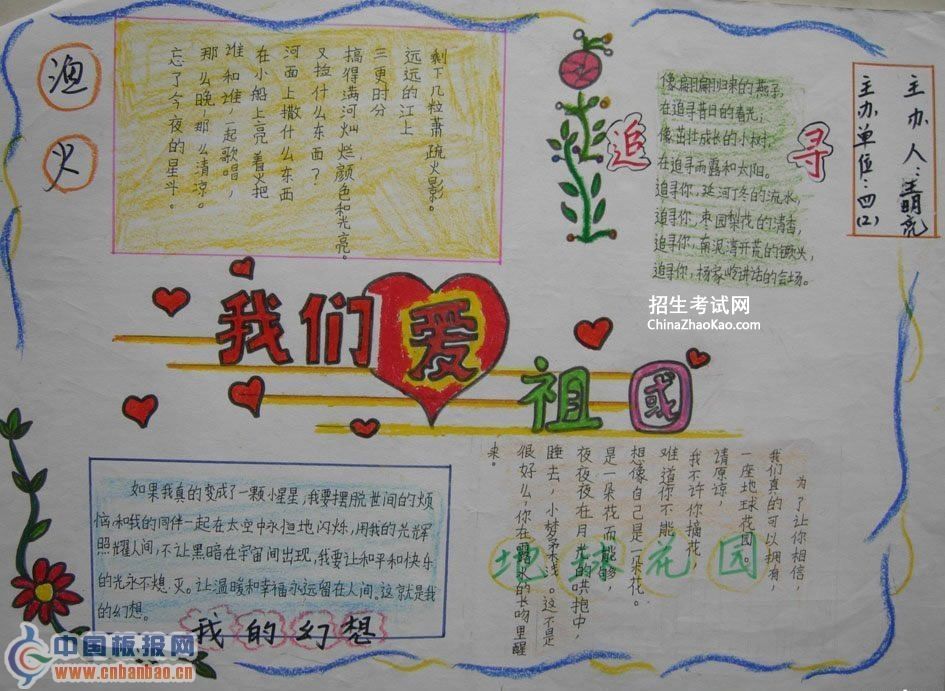 渔火
剩下几粒萧疏火影。
远远的江上
三更时分
搞得满河灿烂,颜色和光亮。
又捡什么东西?
河面上撒什么东西
在小船上亮着火把
谁和谁一起歌唱,
那么晚,那么清凉。
忘了今夜的星斗。
追寻
像翩翩归来的燕子,
在追寻昔日的春光,
像茁壮成长的小树,
在追寻雨露和太阳。
追寻你,延河叮冬的流水,
追寻你,枣园梨花的清香,
追寻你,南泥湾开荒的镢头,
追寻你,杨家岭讲话的会场。
主办人:王明亮
主办单位:四(2)
招生考试网
ChinaZhaoKao.com
我们爱
祖国
如果我真的变成了一颗小星星,我要摆脱世间的烦
恼,和我的同伴一起在太空中永恒地闪烁,用我的光辉
照耀人间,不让黑暗在宇宙间出现,我要让和平和快乐
的光永不熄灭。让温暖和幸福永远留在人间。这就是我
的幻想。
我的幻想
地球花园
为了让你相信,
我们真的可以拥有,
一座地球花园。
请原谅,
我不许你摘花,
难道你不能
想像自己是一朵花。
是一朵花而能够,
夜夜夜在月光的哄抱中,
睡去,小梦 浅。这不是
很好么你在露水的长吻里醒
来。
中国板报网
www.cnbanbao.cn